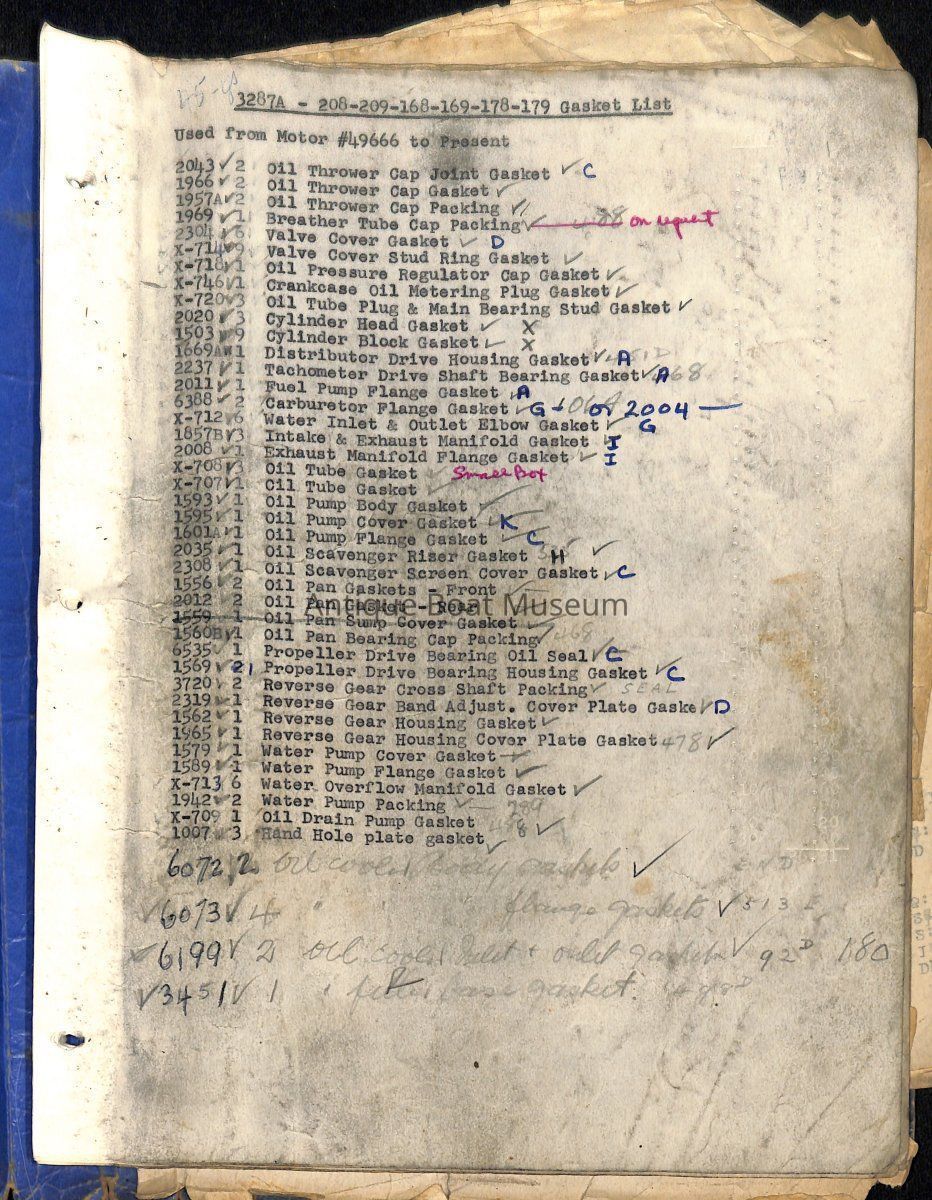 3287A - 208-209-168-169-178-179 Gasket List
Used from Motor #49666 to Present
2043 ✓ 2 Oil Thrower Cap Joint Gasket ✓ C
1966 ✓ 2 Oil Thrower Cap Gasket ✓
1957A ✓ 2 Oil Thrower Cap Packing ✓
1969 ✓ 1 Breather Tube Cap Packing ✓ on request
2304 ✓ 6 Valve Cover Gasket ✓ D
X-714 ✓ 9 Valve Cover Stud Ring Gasket ✓
X-718 ✓ 1 Oil Pressure Regulator Cap Gasket ✓
X-746 ✓ 1 Crankcase Oil Metering Plug Gasket ✓
X-720 ✓ 3 Oil Tube Plug & Main Bearing Stud Gasket ✓
2020 ✓ 3 Cylinder Head Gasket ✓ X
1503 ✓ 9 Cylinder Block Gasket ✓ X
1669A ✓ 1 Distributor Drive Housing Gasket ✓ A
2237 ✓ 1 Tachometer Drive Shaft Bearing Gasket ✓ A 68
2011 ✓ 1 Fuel Pump Flange Gasket ✓ A
6388 ✓ 2 Carburetor Flange Gasket ✓ G - or 2004 —
X-712 ✓ 6 Water Inlet & Outlet Elbow Gasket ✓ G
1857B ✓ 3 Intake & Exhaust Manifold Gasket ✓ I
2008 ✓ 1 Exhaust Manifold Flange Gasket ✓ I
X-708 ✓ 3 Oil Tube Gasket ✓ Small Box
X-707 ✓ 1 Oil Tube Gasket ✓
1593 ✓ 1 Oil Pump Body Gasket ✓
1595 ✓ 1 Oil Pump Cover Gasket ✓ K
1601A ✓ 1 Oil Pump Flange Gasket ✓ C
2035 ✓ 1 Oil Scavenger Riser Gasket H ✓
2308 ✓ 1 Oil Scavenger Screen Cover Gasket ✓ C
1556 ✓ 2 Oil Pan Gaskets - Front ✓
2012 2 Oil Pan Gasket - Rear
Antique Boat Museum
1559 1 Oil Pan Sump Cover Gasket ✓
1560B ✓ 1 Oil Pan Bearing Cap Packing ✓ 68
6535 ✓ 1 Propeller Drive Bearing Oil Seal ✓ C
1569 ✓ 21 Propeller Drive Bearing Housing Gasket ✓ C
3720 ✓ 2 Reverse Gear Cross Shaft Packing ✓ SEAL
2319 ✓ 1 Reverse Gear Band Adjust. Cover Plate Gaske ✓ D
1562 ✓ 1 Reverse Gear Housing Gasket ✓
1965 ✓ 1 Reverse Gear Housing Cover Plate Gasket 478 ✓
1579 ✓ 1 Water Pump Cover Gasket ✓
1589 ✓ 1 Water Pump Flange Gasket ✓
X-713 ✓ 6 Water Overflow Manifold Gasket ✓
1942 ✓ 2 Water Pump Packing ✓ 289
X-709 1 Oil Drain Pump Gasket
1007 ✓ 3 Hand Hole plate gasket 8 ✓
6072 ✓ 2 oil cooler body gaskets ✓
✓ 6073 ✓ 4 " " flange gaskets ✓ 513
6199 ✓ 2 oil cooler inlet + outlet gaskets ✓ 92 D 180
✓ 3451 ✓ 1 " filter base gasket